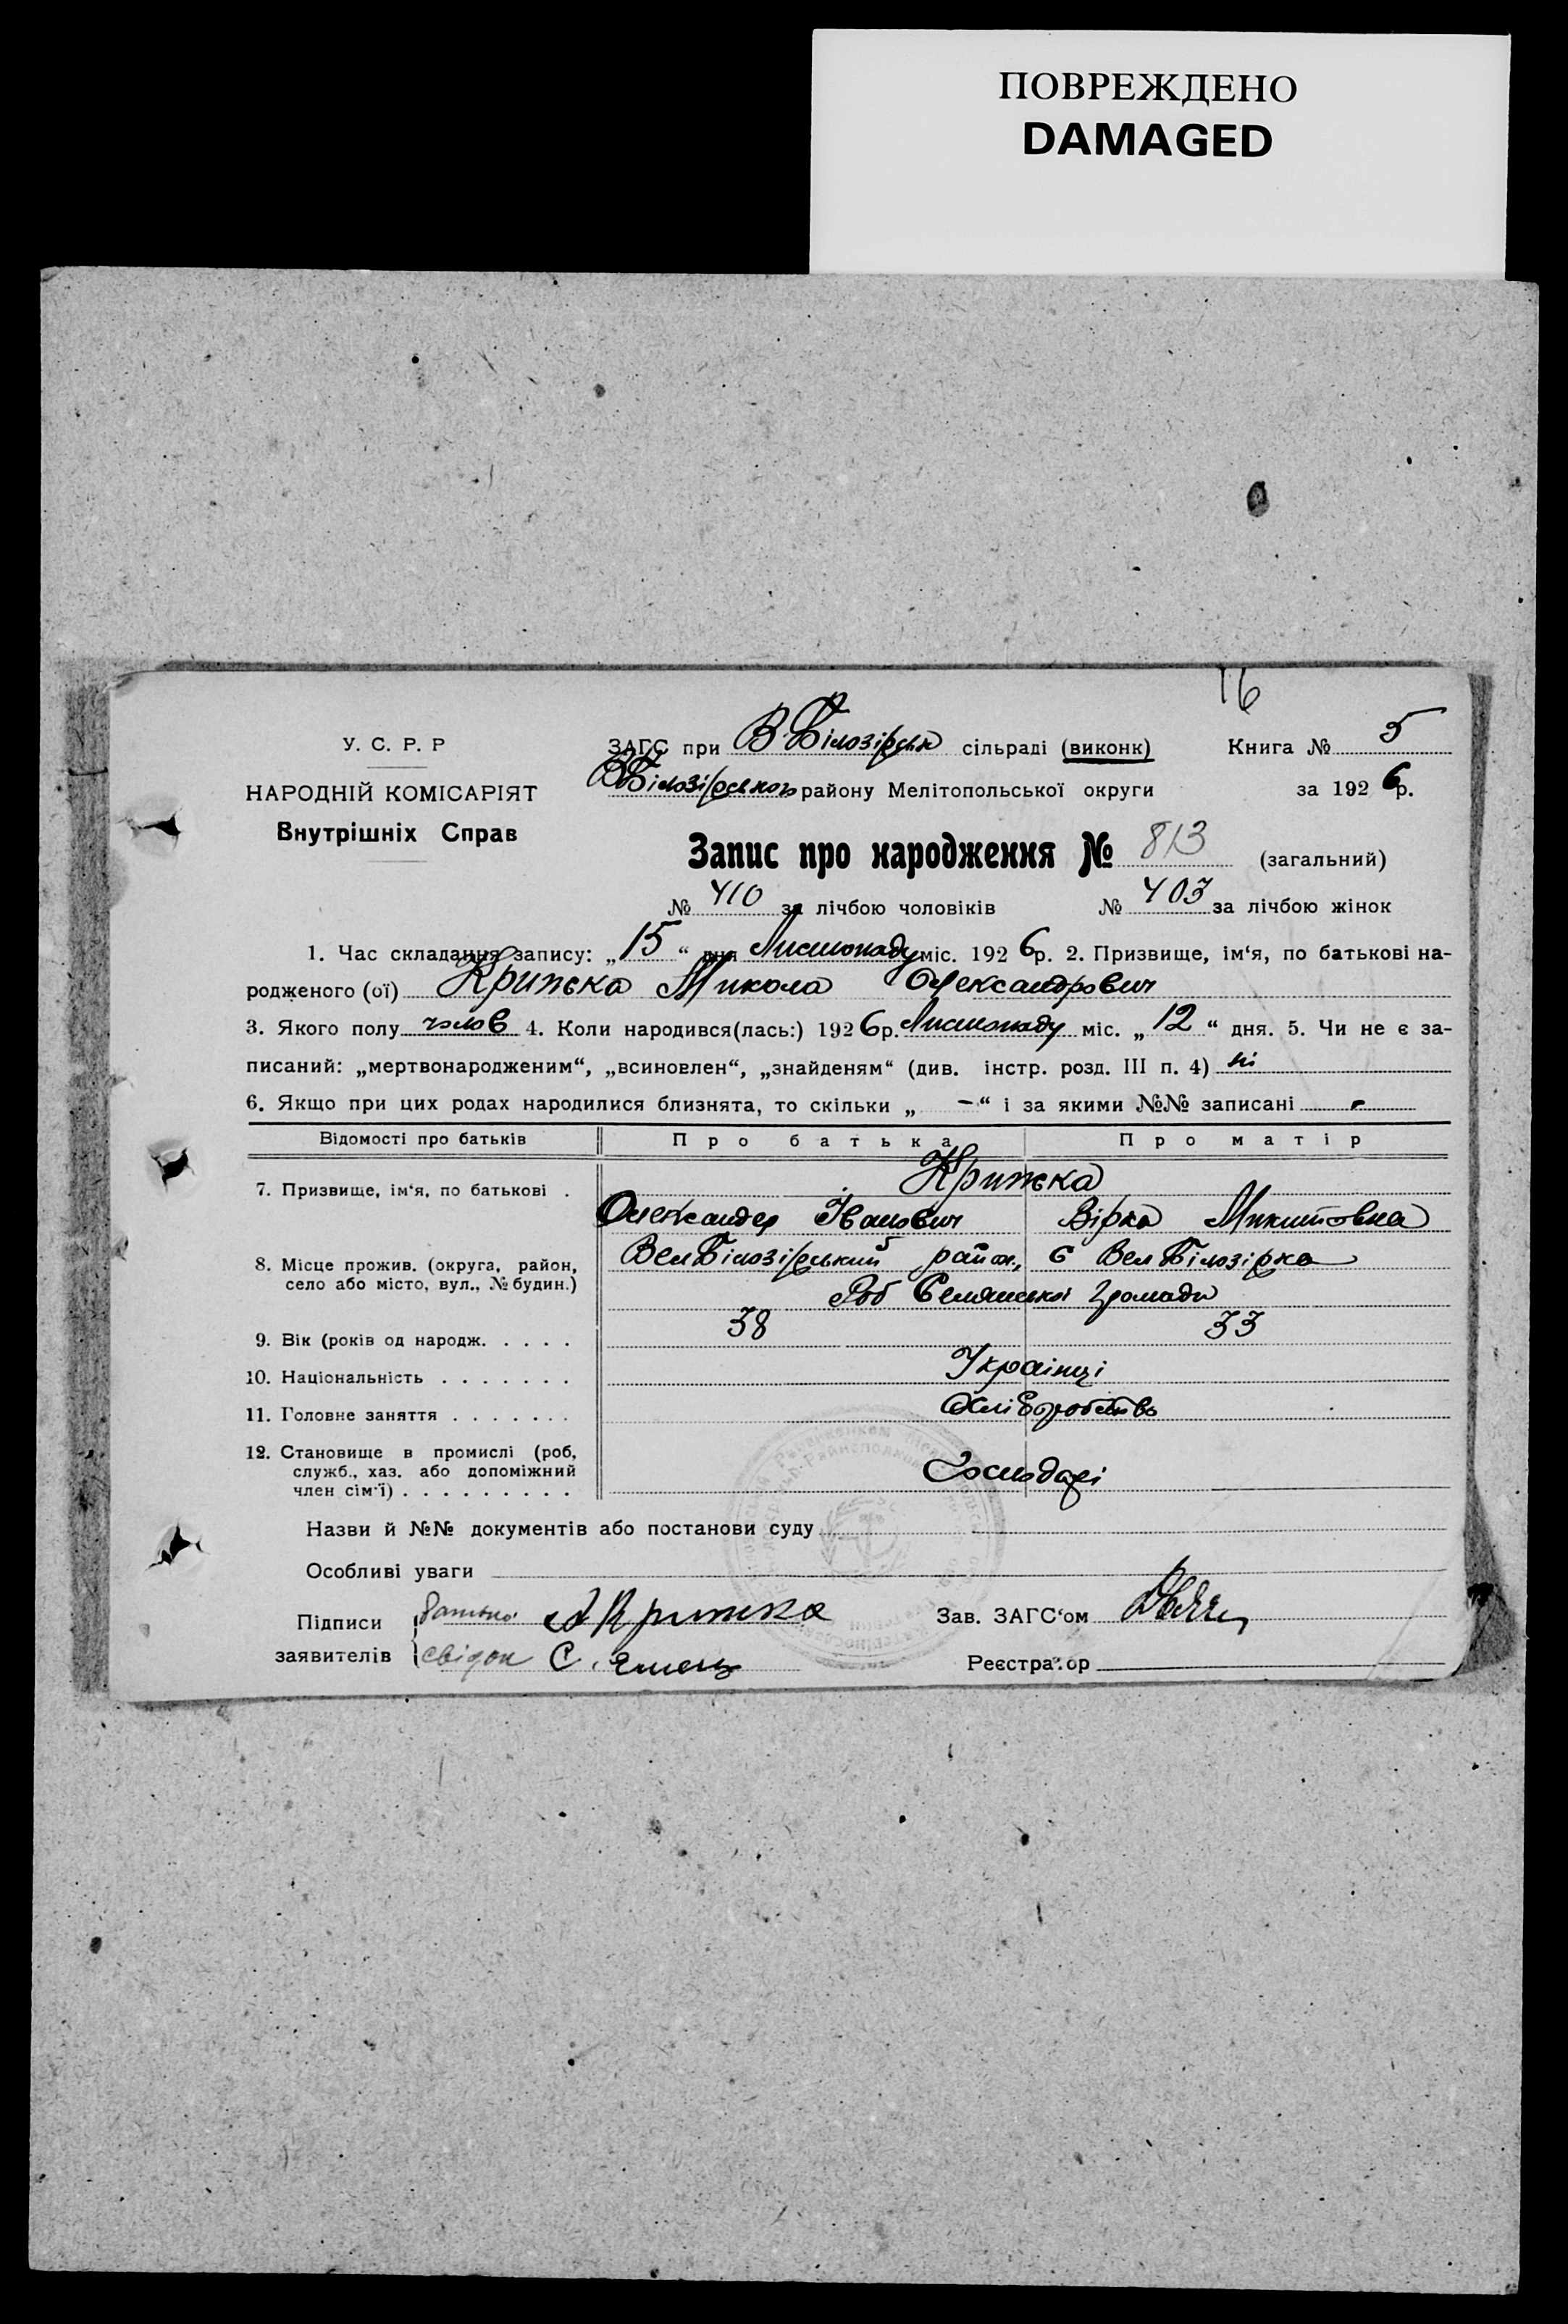 ПОВРЕЖДЕНО
DAMAGED
16
У. С. Р. Р
НАРОДНІЙ КОМІСАРІЯТ
Внутрішніх Справ
ЗАГС при В. Білозірськ сільраді (виконк) Книга № 5
В Білозірського району Мелітопольської округи за 1926 р.
Запис про народження № 813 (загальний)
№ 410 за лічбою чоловіків № 403 за лічбою жінок
1. Час складання запису: „15“ дня Листопаду міс. 1926 р. 2. Призвище, ім‘я, по батькові на-
родженого (ої) Крижка Микола Олександрович
3. Якого полу чолов 4. Коли народився(лась:) 1926 р. Листопаду міс. „12“ дня. 5. Чи не є за-
писаний: „мертвонародженим“, „всиновлен“, „знайденям“ (див. інстр. розд. III п. 4) ні
6. Якщо при цих родах народилися близнята, то скільки „ – “ і за якими №№ записані -
Відомості про батьків Про батька Про матір
7. Призвище, ім‘я, по батькові . Крижка
Олександер Іванович Вірка Микитовна
8. Місце прожив. (округа, район, село або місто, вул., № будин.) Вел Білозірський район, с Вел Білозірка
Роб Селянської Громади
9. Вік (років од народж. . . . . 38 33
10. Національність . . . . . . . Українці
11. Головне заняття . . . . . . . Хліборобство
12. Становище в промислі (роб, служб., хаз. або допоміжний член сім‘ї) . . . . . . . . . Господарі
Назви й №№ документів або постанови суду
Особливі уваги
Підписи заявителів батько: А Крижка Зав. ЗАГС‘ом
свідок С. Ямець Реєстратор